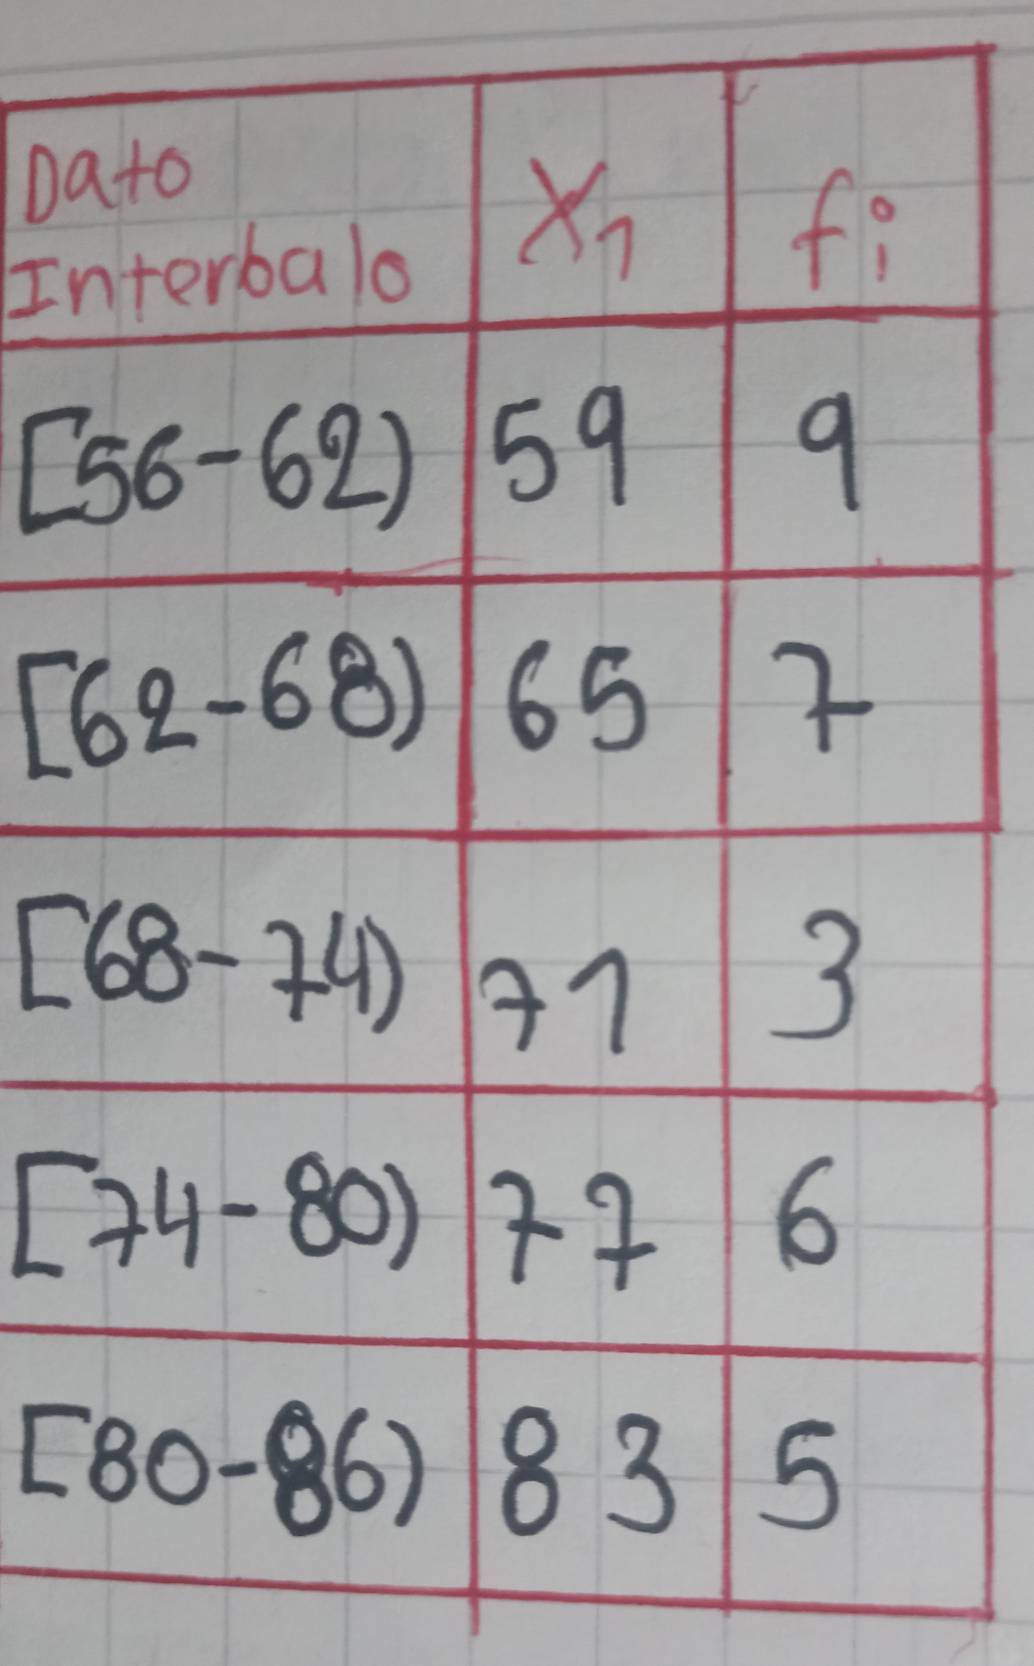 Dato
Interbalo X1 fi
[56-62) 59 9
[62-68) 65 7
[68-74) 71 3
[74-80) 77 6
[80-86) 83 5